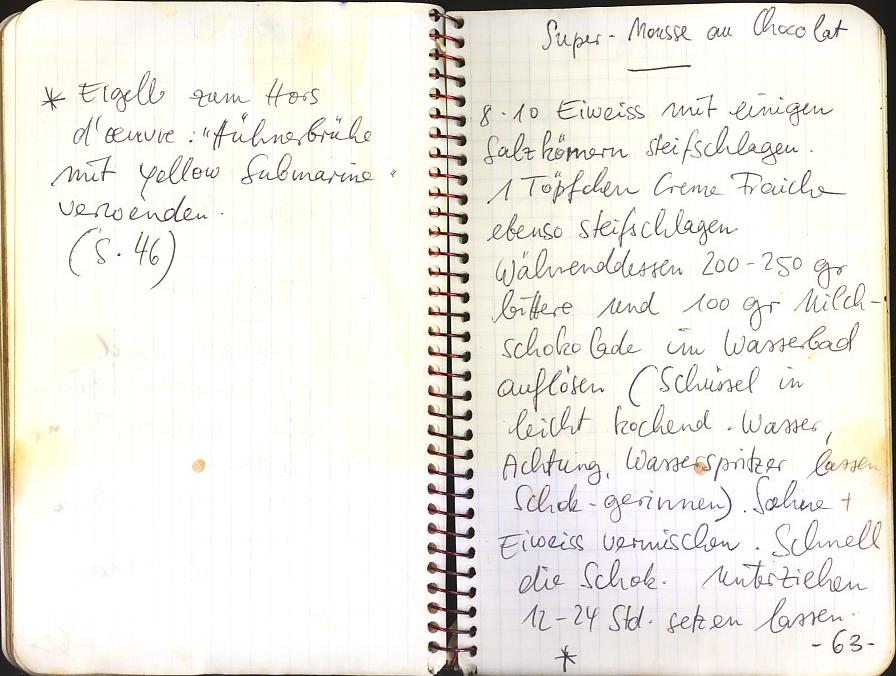 * Eigelb zum Hors
d'œuvre: "Hühnerbrühe
mit yellow Submarine"
verwenden.
(S. 46)
Super-Mousse au Chocolat
8-10 Eiweiss mit einigen
Salzkörnern steifschlagen.
1 Töpfchen Creme Fraiche
ebenso steifschlagen
Währenddessen 200-250 gr
bittere und 100 gr Milch-
schokolade im Wasserbad
auflösen (Schüssel in
leicht kochend. Wasser,
Achtung, Wasserspritzer lassen
Schok-gerinnen). Sahne +
Eiweiss vermischen. Schnell
die Schok. unterziehen
12-24 Std. setzen lassen.
*
-63-